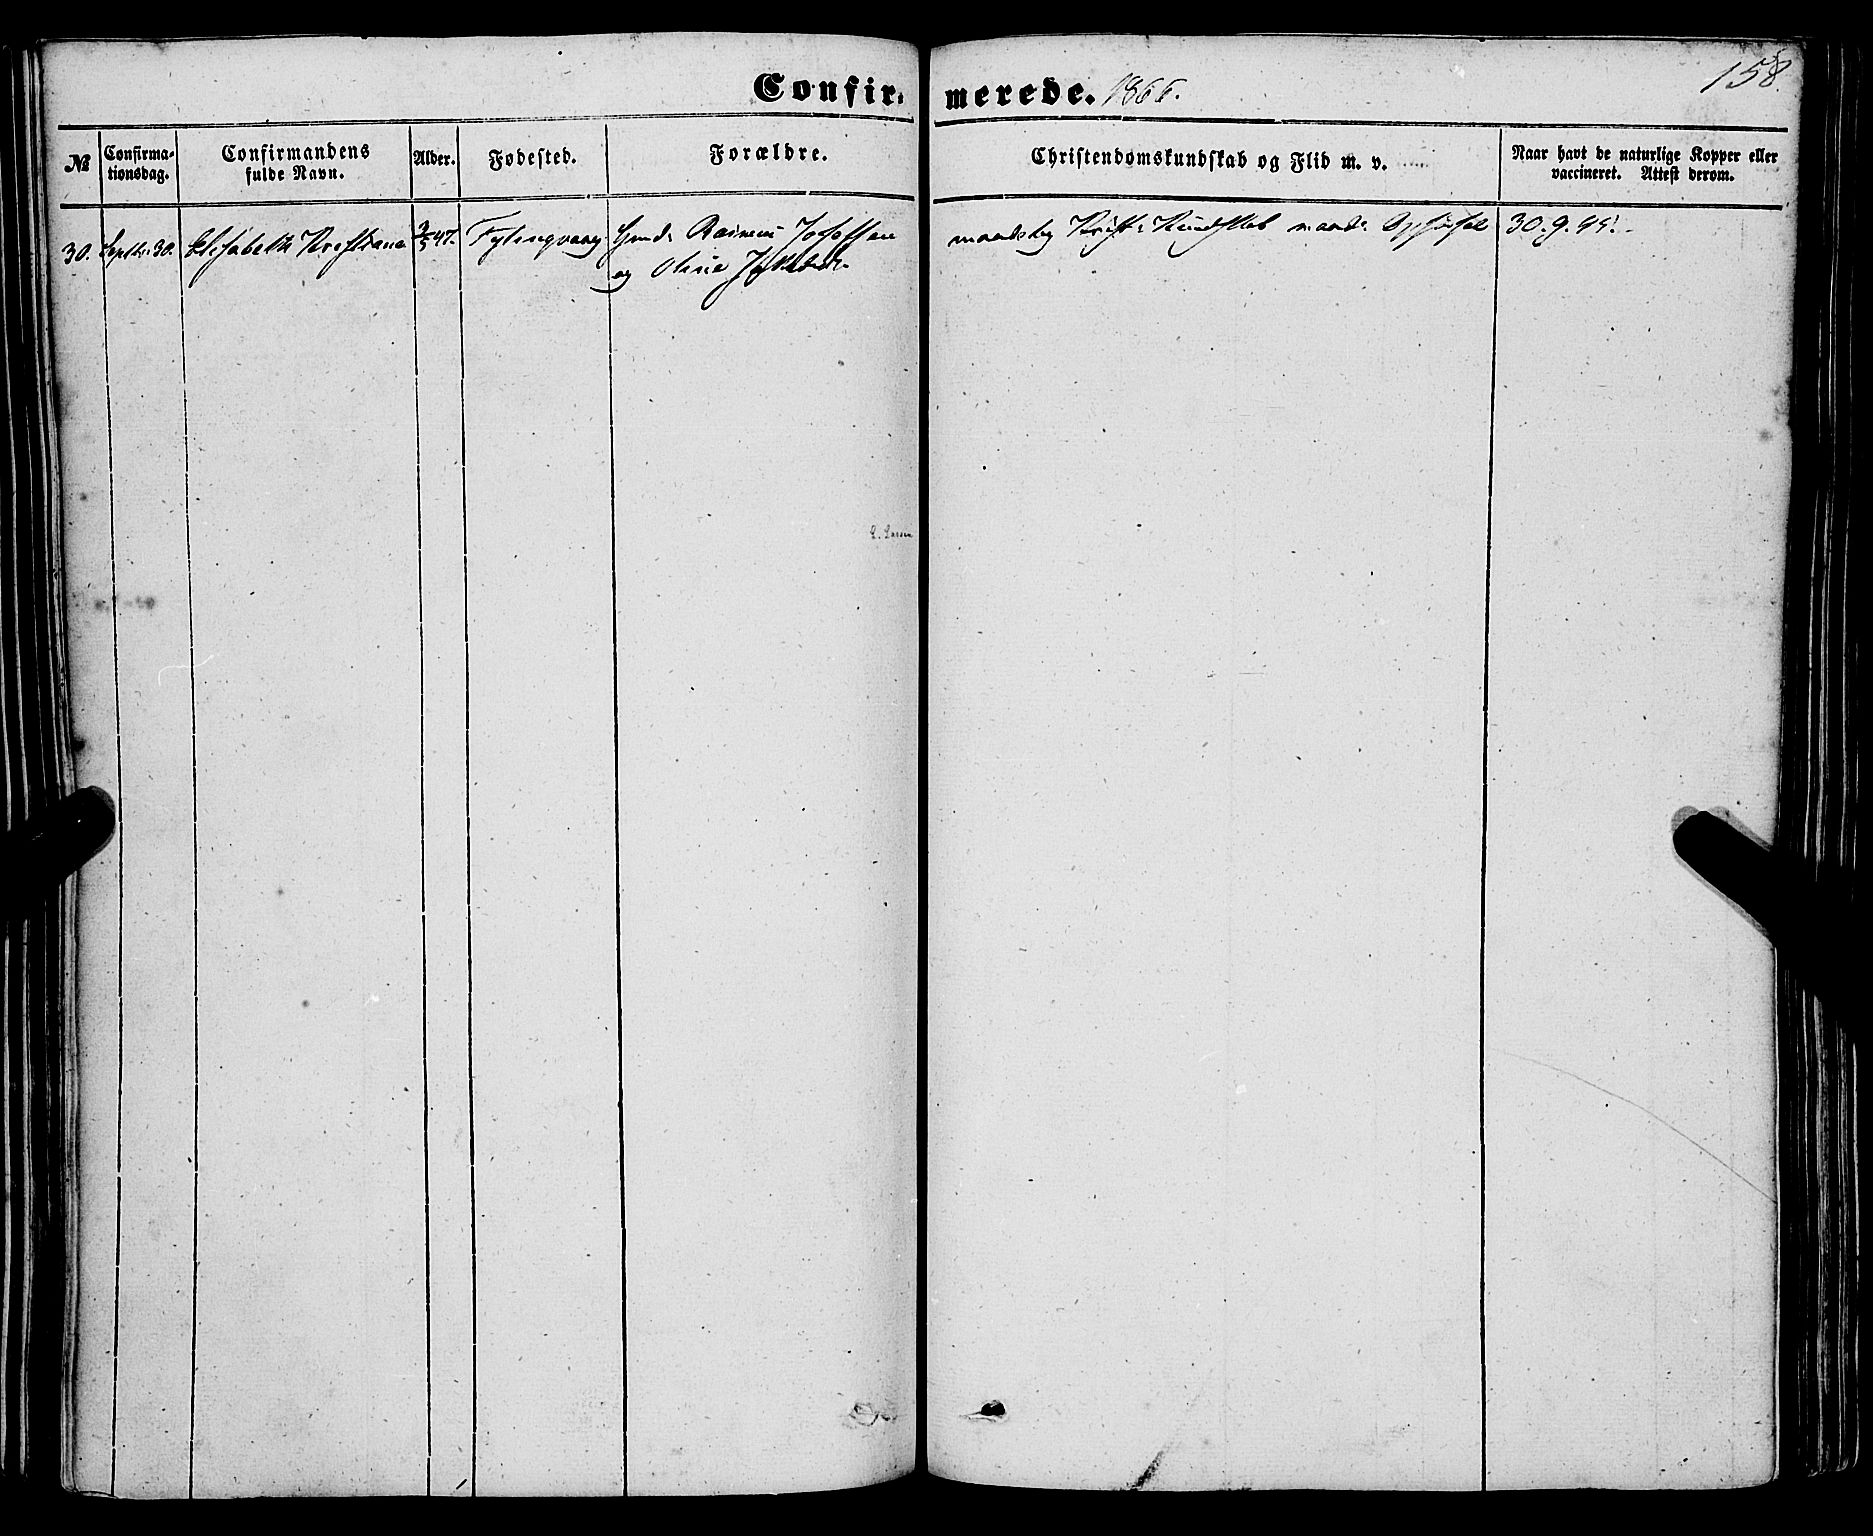 Confir- merede. 1866.
158.
№
Confirma-
tionsdag.
Confirmandens
fulde Navn.
Alder.
Fødested.
Forældre.
Christendomskundskab og Flid m. v.
Naar havt de naturlige Kopper eller
vaccineret. Attest derom.
30. Septbr. 30. Elisabeth Kristiane 47. Fylingvaag Gmd. Rasmus Josefsen
og Oline
Krist. Kundskab maad. Opførsel 30.9.
L. Larsen